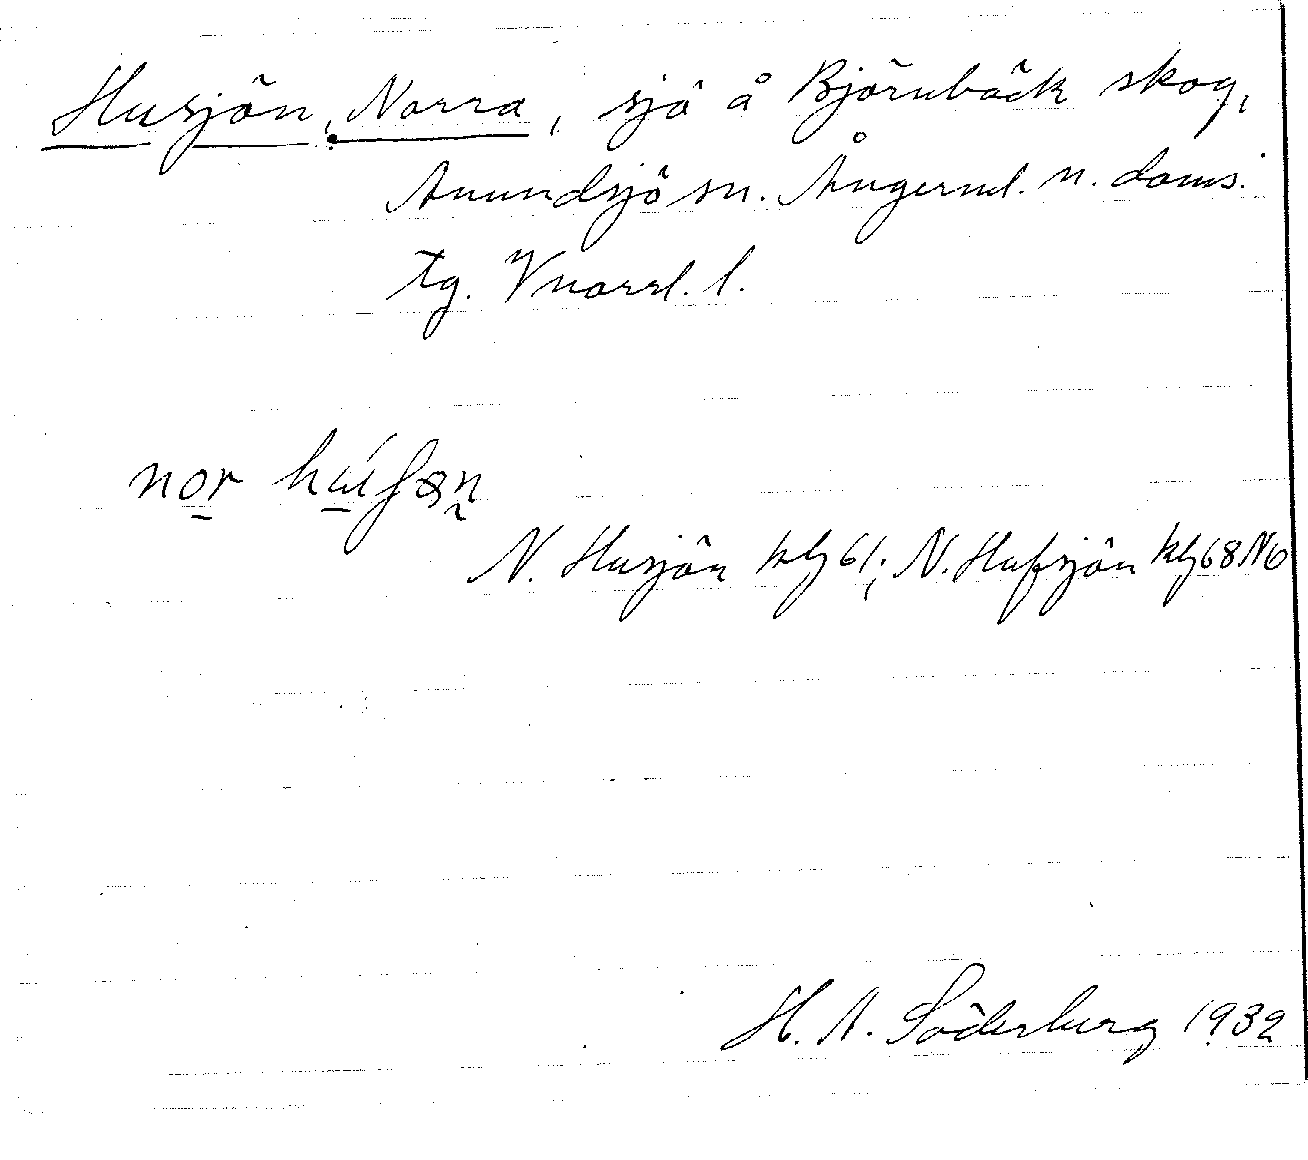 Husjön, Norra, sjö å Björnbäck skog,
Anundsjö sn. Ångerml. n. doms.
tg. Vnorrl. l.
nor húʃøn
N. Husjön klj 61; N. Hufsjön klj 68 NO
H. A. Söderberg 1932